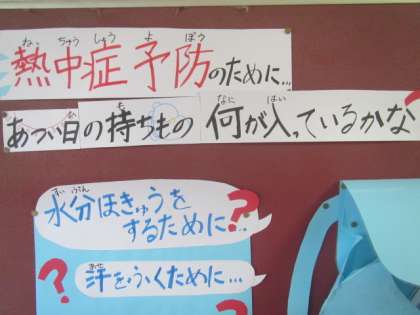 ねっちゅうしょうよぼう
熱中症予防のために…
ひ も なに はい
あつい日の持ちもの 何が入っているかな?
すいぶん
水分ほきゅうを
するために…?
あせ
?汗をふくために…
?